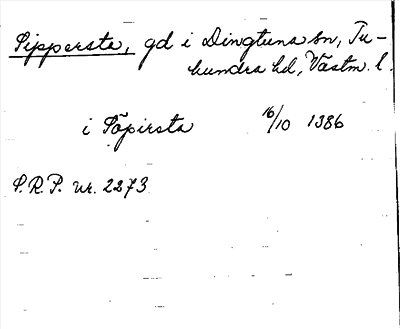 Sippersta, gd i Dingtuna sn, Tu-
hundra hd, Västm. l.
i Söpirsta 16/10 1386
S.R.P. nr. 2273